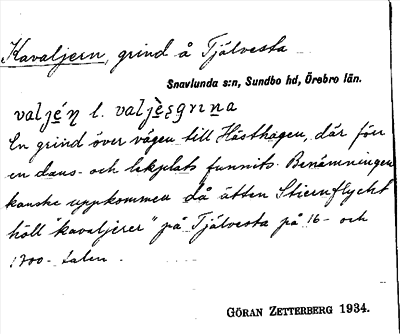 Kavaljern, grind å Tjälvesta
Snavlunda s:n, Sundbo hd, Örebro län.
valjén l. valjèsgrına
En grind över vägen till Hästhagen, där förr
en dans- och lekplats funnits. Benämningen
kanske uppkommen då ätten Stiernflycht
höll "kavaljerer" på Tjälvesta på 16- och
1700-talen.
GÖRAN ZETTERBERG 1934.